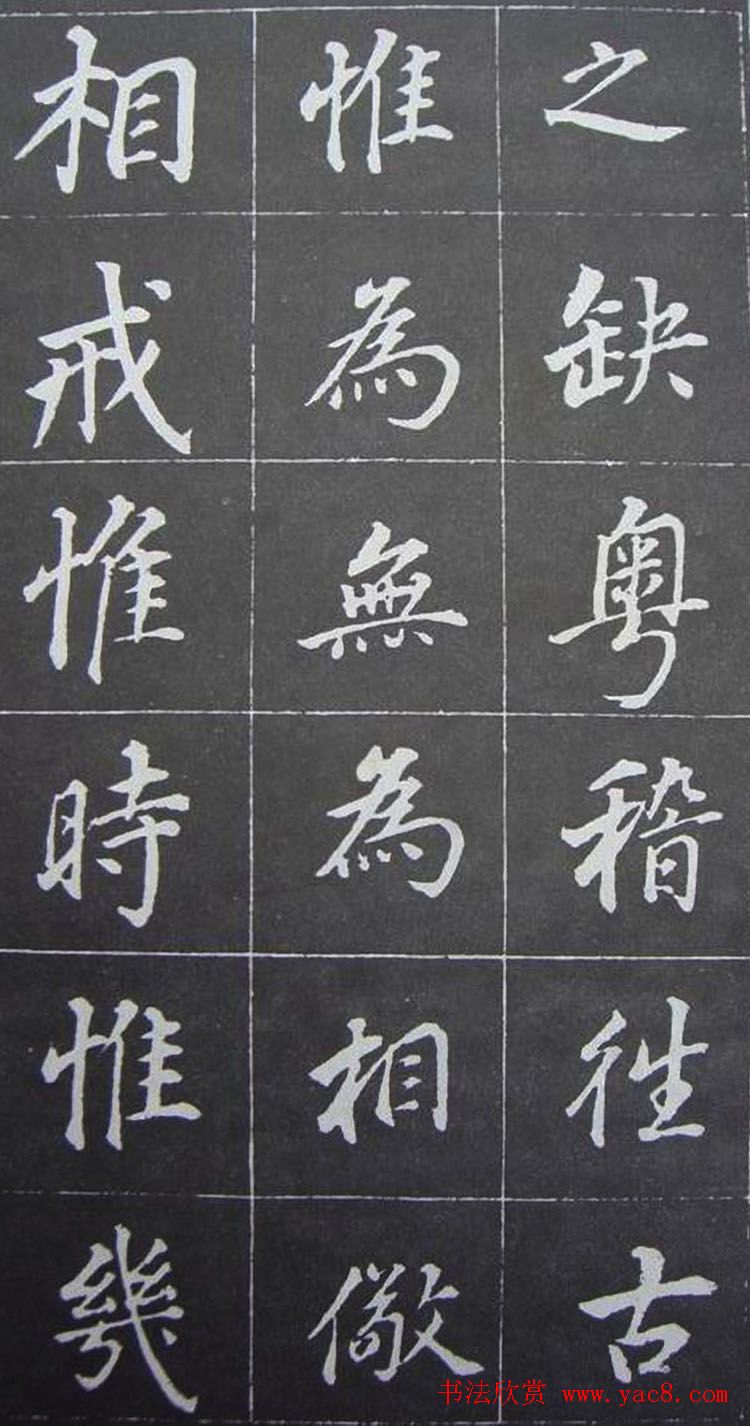 之缺粤稽往古
惟為無為相儆
相戒惟時惟幾
书法欣赏 www.yac8.com